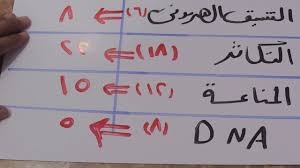 التنسيق الهرمونى (٦) ⇐ ٨
التكاثر (١٨) ⇐ ٢٥
المناعة (١٢) ⇐ ١٥
DNA (٨) ⇐ ٥